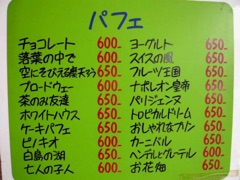 パフェ
チョコレート 600-
落葉の中で 600-
空にそびえる摩天ろう 650-
ブロードウェー 600-
茶のお友達 650-
ホワイトハウス 650-
ケーキパフェ 650-
ピノキオ 600-
白鳥の湖 650-
七人の子人 600-
ヨーグルト 650-
スイスの風 650-
フルーツ王国 650-
ナポレオン皇帝 650-
パリジェンヌ 650-
トロピカルドリーム 650-
おしゃれなプリン 650-
カーニバル 650-
ヘンデルとグレーテル 600-
お花畑 650-